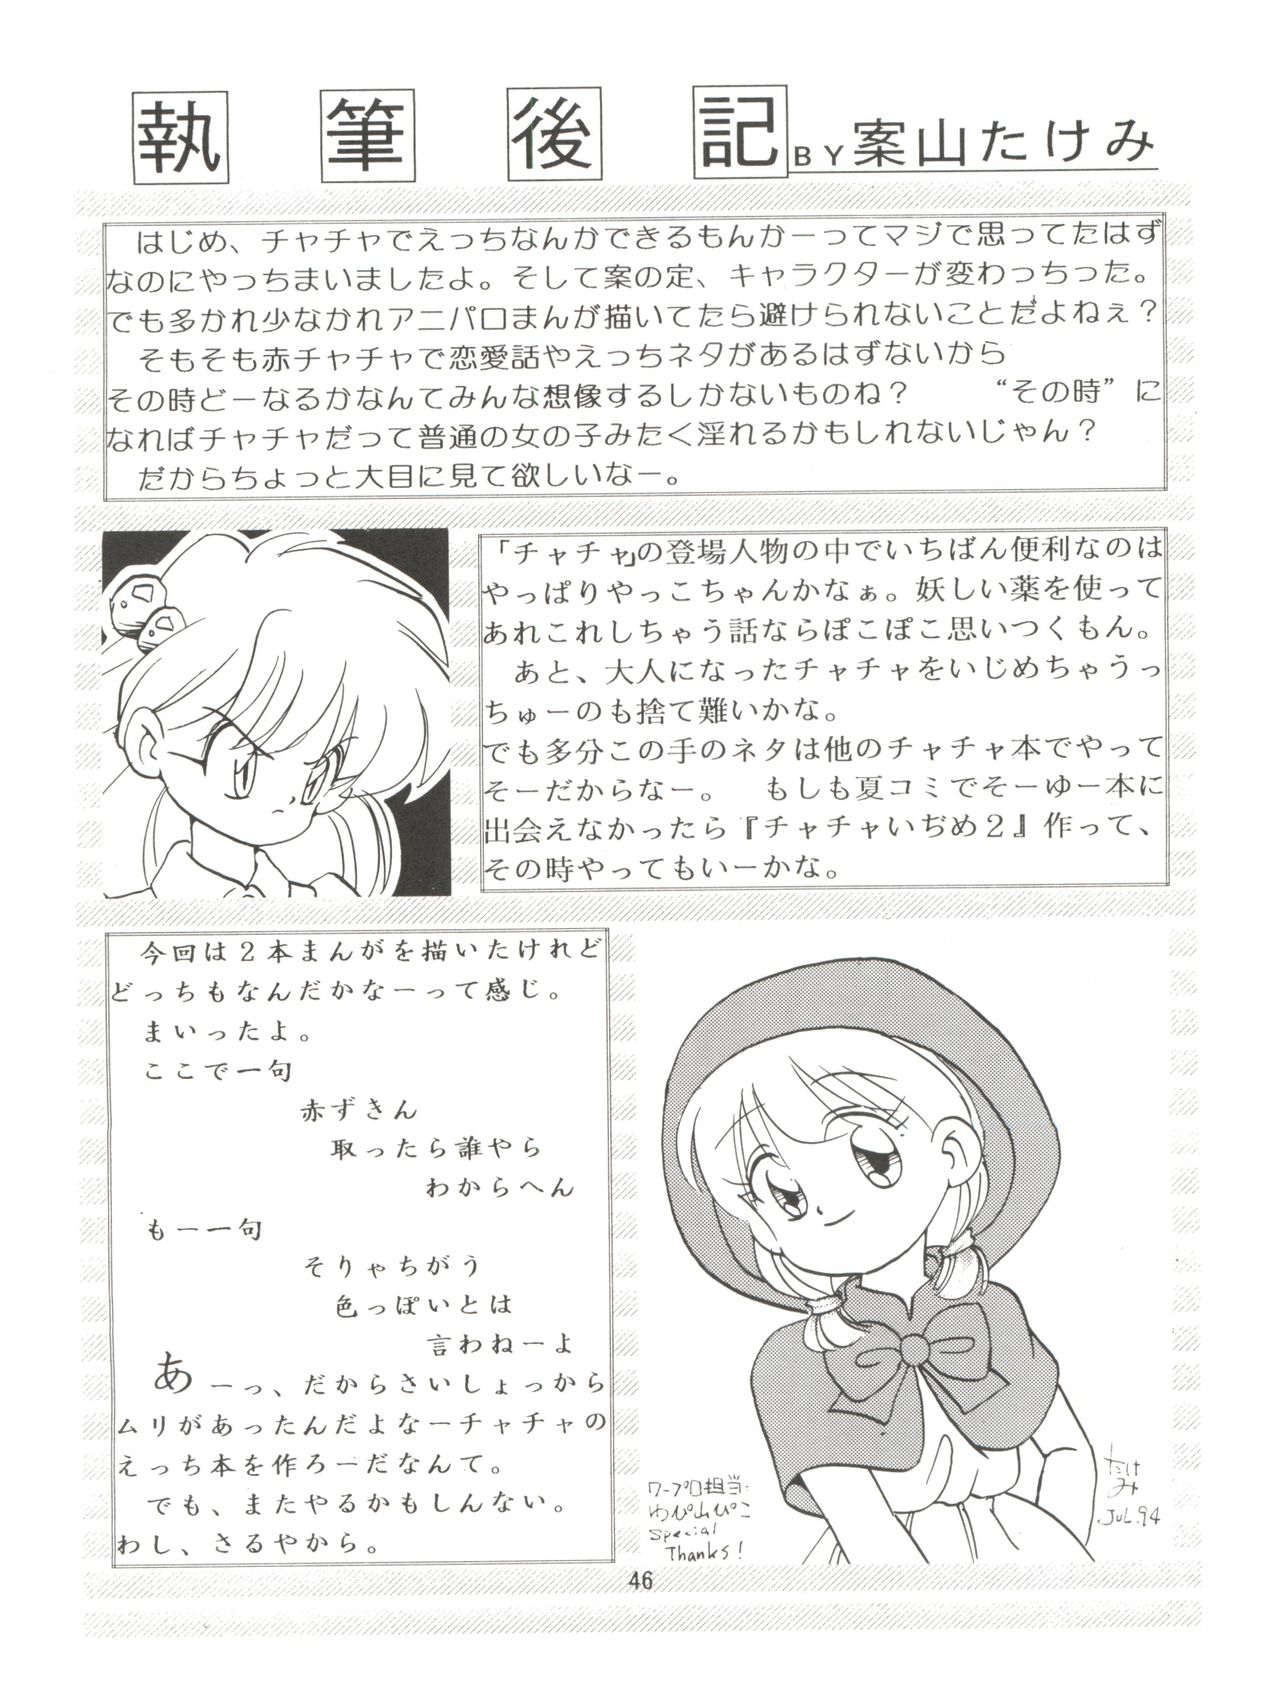 執筆後記 BY 案山たけみ
はじめ、チャチャでえっちなんかできるもんかーってマジで思ってたはず
なのにやっちまいましたよ。そして案の定、キャラクターが変わっちった。
でも多かれ少なかれアニパロまんが描いてたら避けられないことだよねぇ?
そもそも赤チャチャで恋愛話やえっちネタがあるはずないから
その時どーなるかなんてみんな想像するしかないものね? “その時”に
なればチャチャだって普通の女の子みたく淫れるかもしれないじゃん?
だからちょっと大目に見て欲しいなー。
「チャチャ」の登場人物の中でいちばん便利なのは
やっぱりやっこちゃんかなぁ。妖しい薬を使って
あれこれしちゃう話ならぽこぽこ思いつくもん。
あと、大人になったチャチャをいじめちゃうっ
ちゅーのも捨て難いかな。
でも多分この手のネタは他のチャチャ本でやって
そーだからなー。 もしも夏コミでそーゆー本に
出会えなかったら『チャチャいぢめ2』作って、
その時やってもいーかな。
今回は2本まんがを描いたけれど
どっちもなんだかなーって感じ。
まいったよ。
ここで一句
赤ずきん
取ったら誰やら
わからへん
もー一句
そりゃちがう
色っぽいとは
言わねーよ
あーっ、だからさいしょっから
ムリがあったんだよなーチャチャの
えっち本を作ろーだなんて。
でも、またやるかもしんない。
わし、さるやから。
ワープロ担当:
わぴ山ぴこ
Special
Thanks!
たけ
み
.JUL.94
46